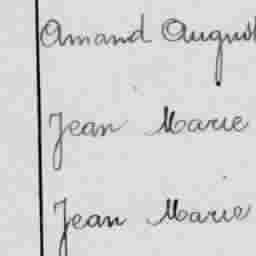 Amand August
Jean Marie
Jean Marie